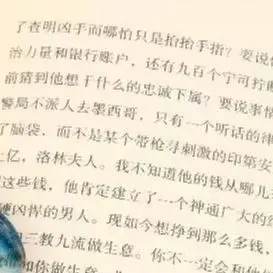 了查明凶手而哪怕只是抬抬手指？要说
治力量和银行账户，还有九百个宁可拧
前猜到他想干什么的忠诚下属？要说事
警局不派人去墨西哥，只有一个听话的
了脑袋，而不是某个带枪寻刺激的印第安
上亿，洛林夫人。我不知道他的钱从哪儿
这些钱，他肯定建立了一个神通广大的
硬凶悍的男人。现如今想挣到那么多钱，
三教九流做生意。你不一定会和他
和你做生意